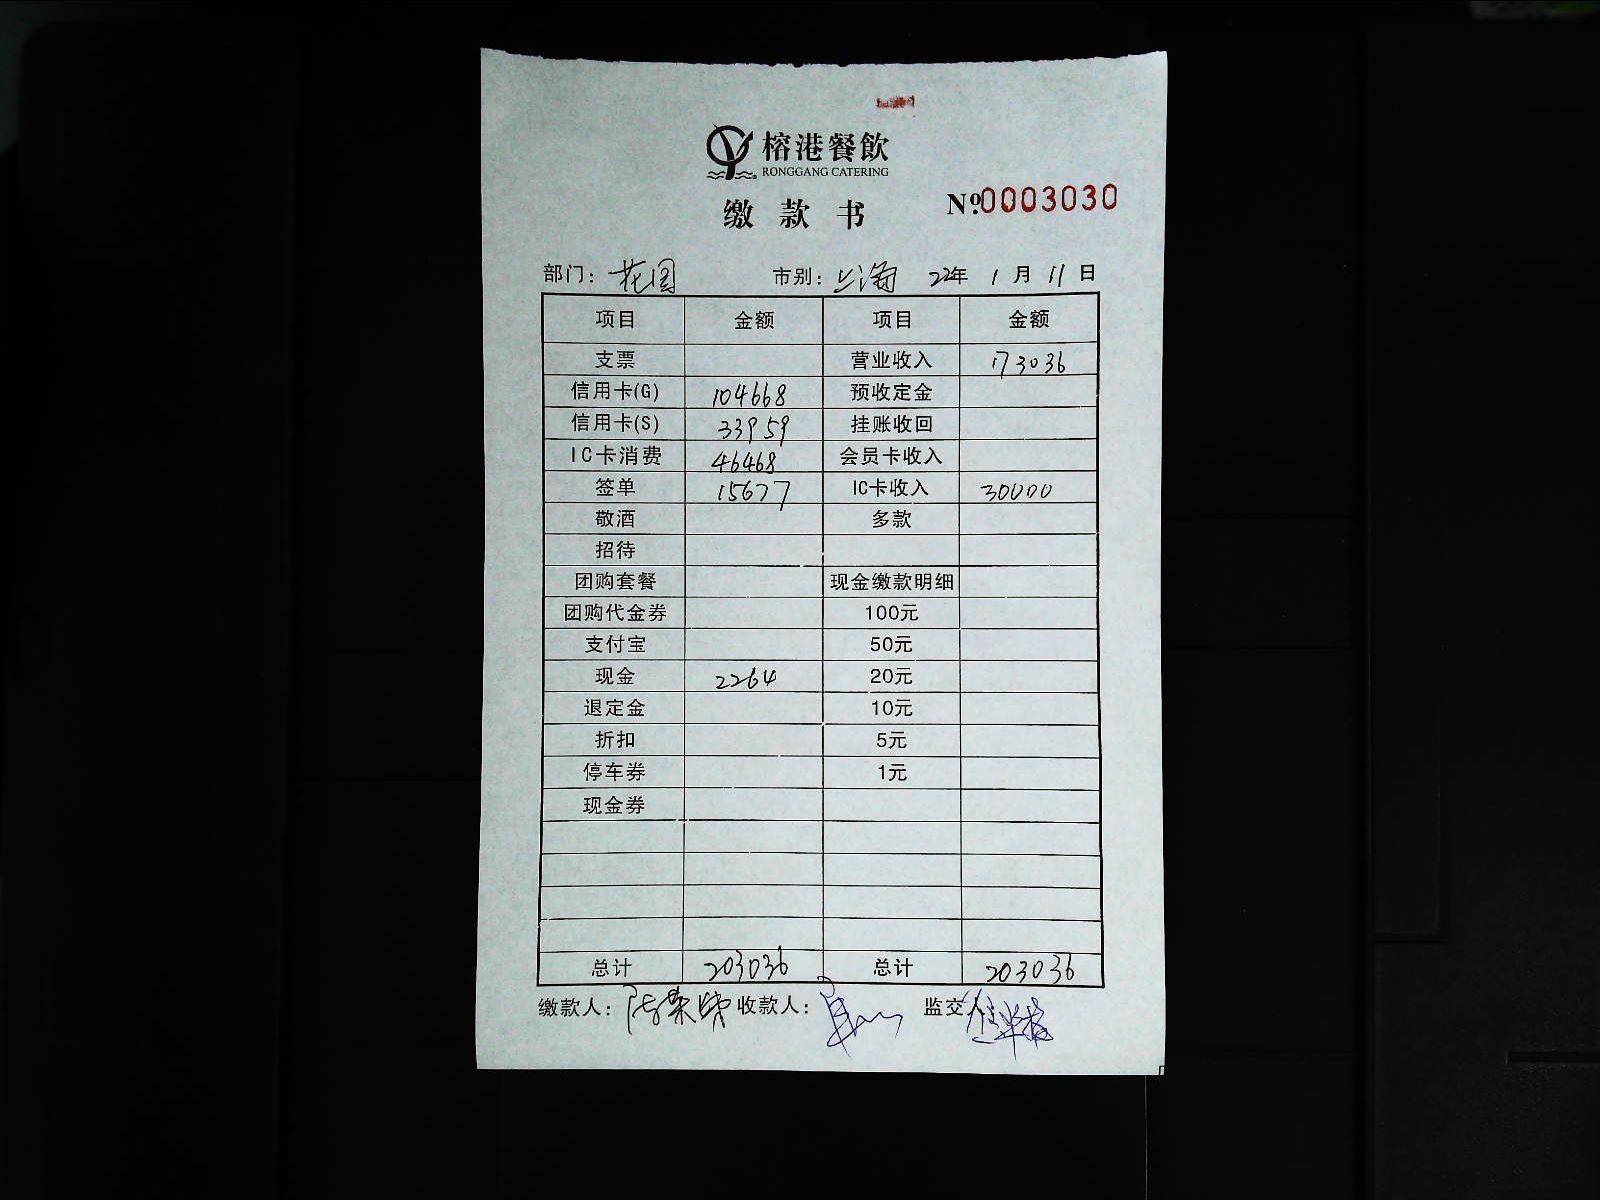 榕港餐飲
RONGGANG CATERING
缴款书 Nº.0003030
部门：花园 市别：上海 22年 1月 11日
项目 金额 项目 金额
支票 营业收入 173036
信用卡(G) 104668 预收定金
信用卡(S) 33959 挂账收回
IC卡消费 46468 会员卡收入
签单 15677 IC卡收入 30000
敬酒 多款
招待
团购套餐 现金缴款明细
团购代金券 100元
支付宝 50元
现金 2264 20元
退定金 10元
折扣 5元
停车券 1元
现金券
总计 203036 总计 203036
缴款人： 收款人： 监交人